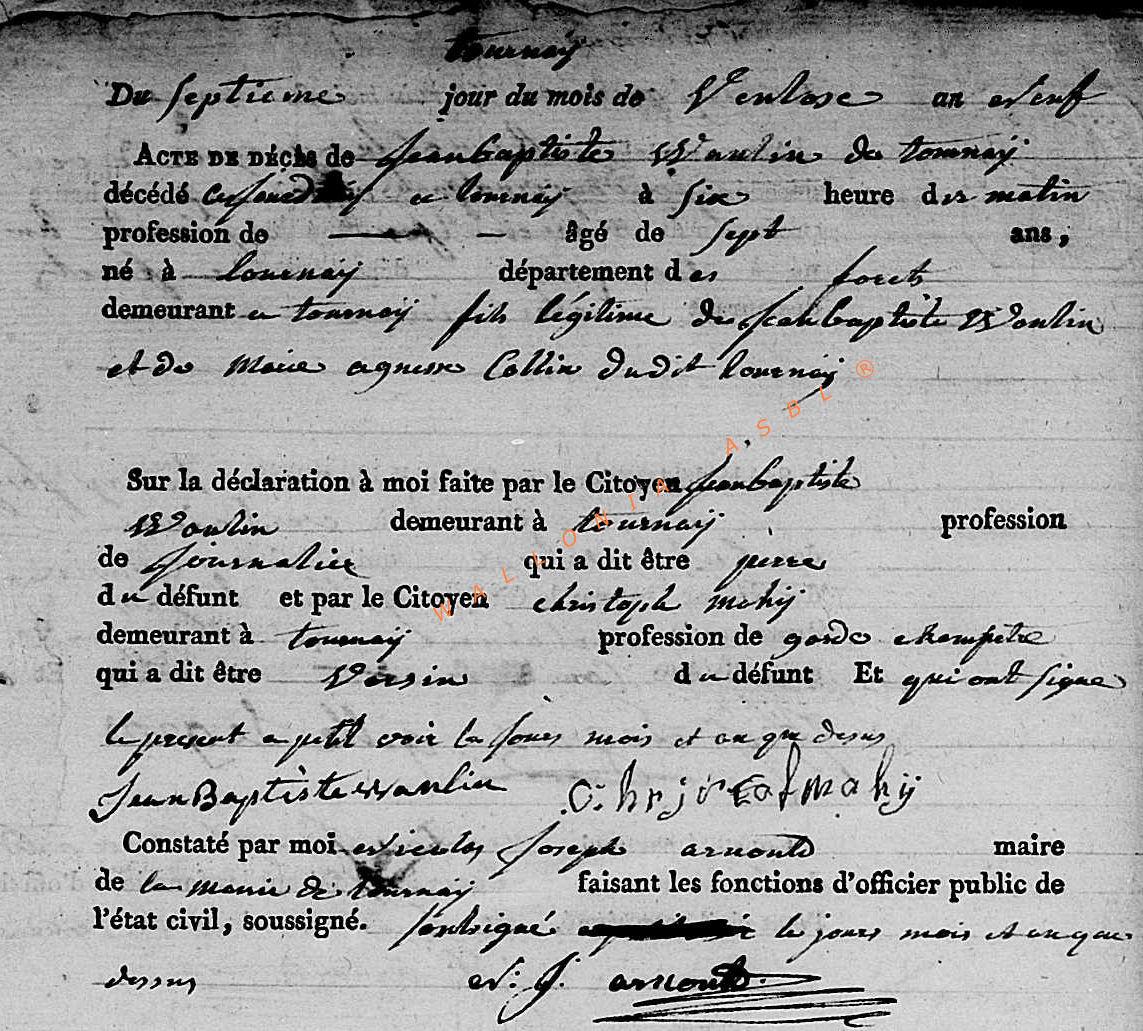 tournay
Du septieme jour du mois de Ventose an neuf
ACTE DE DÉCÈS de jean baptiste Waulin de tournay
décédé ce jourdhuy a tournay à six heure des matin
profession de — âgé de sept ans,
né à tournay département des forets
demeurant a tournay fils légitime de jean baptiste Woulin
et de Marie agnesse Collin dudit tournay
Sur la déclaration à moi faite par le Citoyen jean baptiste
Woulin demeurant à tournay profession
de journalier qui a dit être perre
du défunt et par le Citoyen christoph mahy
demeurant à tournay profession de garde champetre
qui a dit être Voisin du défunt Et qui ont signe
le present a petit voir les jours mois et an que desus
Jean Baptiste Waulin Chrjstof mahy
Constaté par moi nicolas joseph arnould maire
de la mairie de tournay faisant les fonctions d'officier public de
l'état civil, soussigné. soubsigné les jours mois et an que
dessus N. J. arnould
WALLONIA ASBL ®